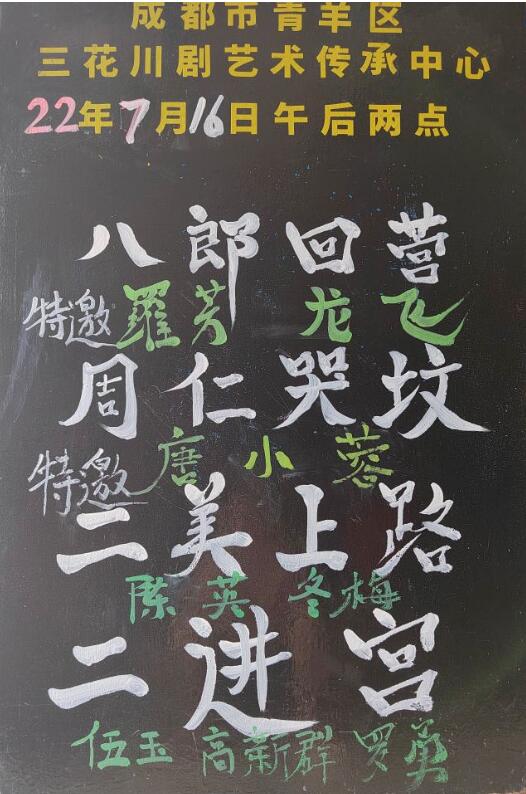 成都市青羊区
三花川剧艺术传承中心
22年7月16日午后两点
八郎回营
特邀 羅芳 龙飞
周仁哭坟
特邀 唐小蓉
二美上路
陈英 冬梅
二进宫
伍玉 高新群 罗勇